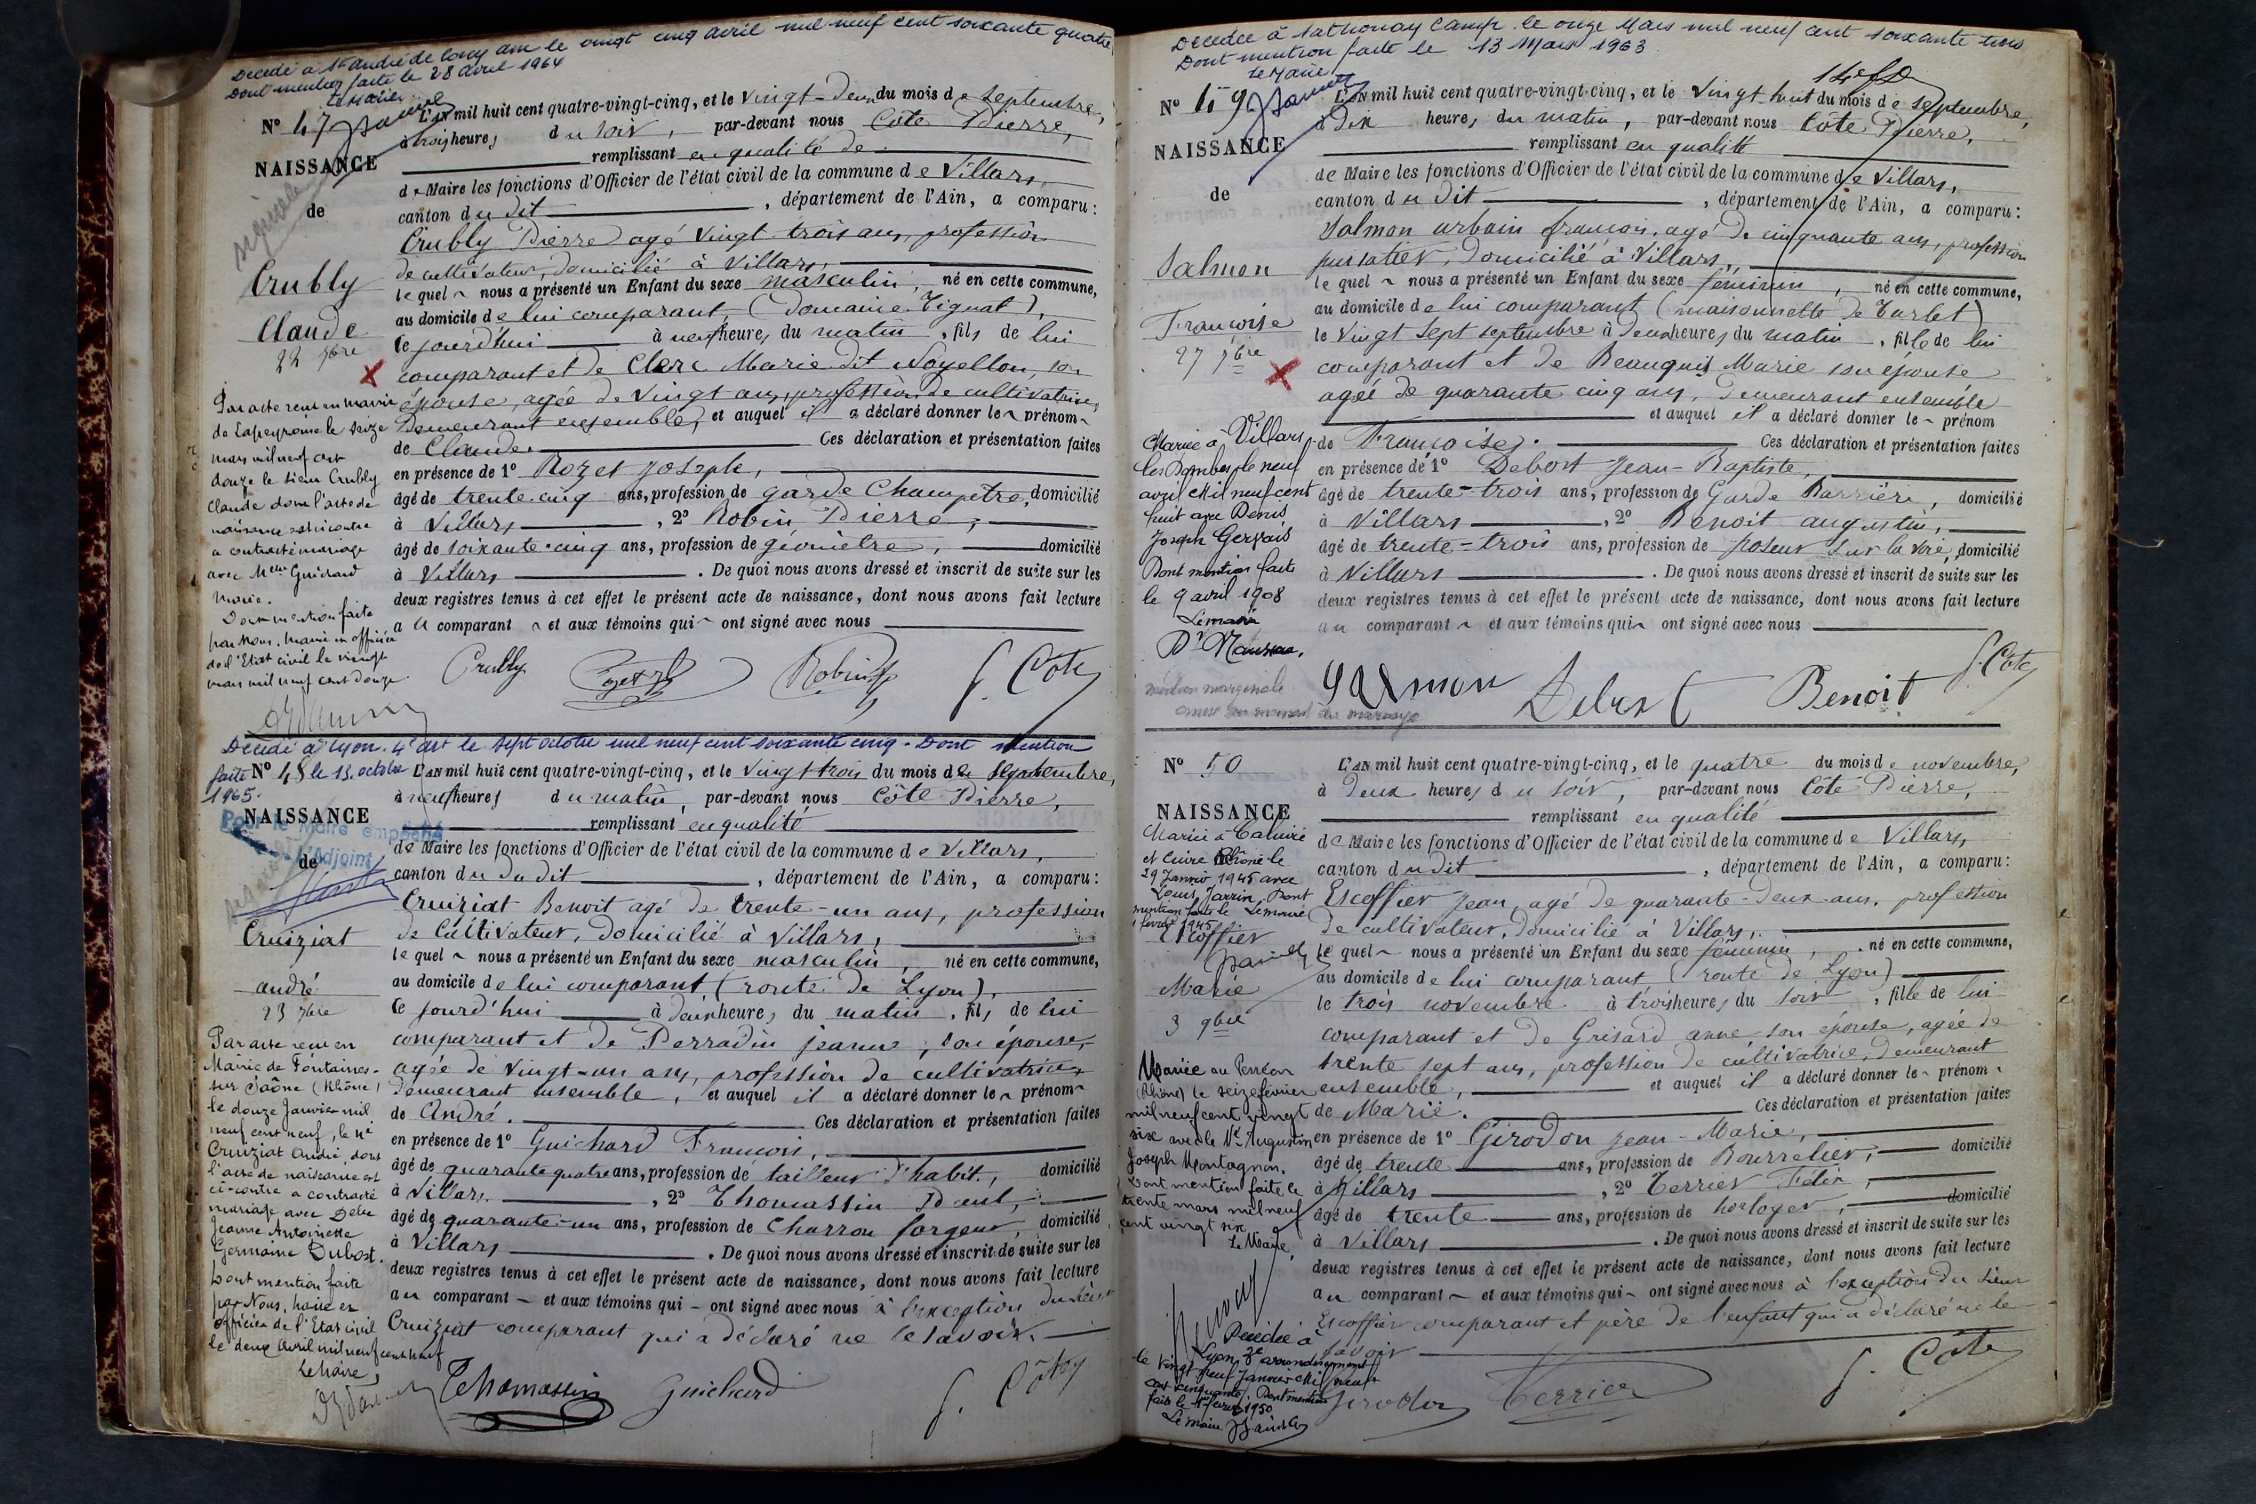 Décédé à St André de Corcy Ain le vingt cinq avril mil neuf cent soixante quatre
Dont mention faite le 28 avril 1964
Le Maire
N° 47
NAISSANCE
de
Crubly
Claude
22 7bre
Par acte reçu en mairie
de Lapeyrouse le seize
mars mil neuf cent
douze le sieur Crubly
Claude dont l'acte de
naissance est ci contre
a contracté mariage
avec Melle Guichard
Marie.
Dont mention faite
par Nous, Maire en officier
de l'Etat civil le vingt
mars mil neuf cent douze.
L'AN mil huit cent quatre-vingt-cinq, et le vingt-deux du mois de septembre,
à trois heures du soir, par-devant nous Côte Pierre,
remplissant en qualité de
de Maire les fonctions d'Officier de l'état civil de la commune de Villars,
canton du dit, département de l'Ain, a comparu:
Crubly Pierre agé vingt trois ans, profession
de cultivateur, domicilié à Villars,
lequel nous a présenté un Enfant du sexe masculin, né en cette commune,
au domicile de lui comparant (Domaine Tignat),
ce jourd'hui à neuf heures du matin, fils de lui
comparant et de Clerc Marie dit Noyellon, son
épouse, agée de vingt ans, profession de cultivatrice,
Demeurant ensemble, et auquel il a déclaré donner le prénom
de Claude. Ces déclaration et présentation faites
en présence de 1° Rozet Joseph,
âgé de trente-cinq ans, profession de garde Champêtre, domicilié
à Villars, 2° Robin Pierre,
âgé de soixante-cinq ans, profession de géomètre, domicilié
à Villars. De quoi nous avons dressé et inscrit de suite sur les
deux registres tenus à cet effet le présent acte de naissance, dont nous avons fait lecture
au comparant et aux témoins qui ont signé avec nous
Crubly Rozet Robin P. Côte
Décédé à Lyon. 4e art le sept octobre mil neuf cent soixante cinq. Dont mention
faite le 13. octobre
1965.
N° 48
NAISSANCE
Pour le Maire empêché
L'Adjoint
de
Cruiziat
andré
23 7bre
Par acte reçu en
Mairie de Fontaines-
sur Saône (Rhône)
le douze Janvier mil
neuf cent neuf, le Nè
Cruiziat André, dont
l'acte de naissance est
ci-contre a contracté
mariage avec Delle
Jeanne Antoinette
Germaine Dubost.
Dont mention faite
par Nous, Maire en
officier de l'Etat civil
le deux Avril mil neuf cent neuf
Le Maire,
L'AN mil huit cent quatre-vingt-cinq, et le vingt trois du mois de septembre,
à neuf heures du matin, par-devant nous Côte Pierre,
remplissant en qualité
de Maire les fonctions d'Officier de l'état civil de la commune de Villars,
canton du du dit, département de l'Ain, a comparu:
Cruiziat Benoit agé de trente-un ans, profession
de Cultivateur, domicilié à Villars,
lequel nous a présenté un Enfant du sexe masculin, né en cette commune,
au domicile de lui comparant (route de Lyon),
ce jourd'hui à deux heures du matin, fils de lui
comparant et de Perradin jeanne, son épouse,
agée de vingt-un ans, profession de cultivatrice,
demeurant ensemble, et auquel il a déclaré donner le prénom
de André. Ces déclaration et présentation faites
en présence de 1° Guichard François,
âgé de quarante quatre ans, profession de tailleur d'habit., domicilié
à Villars, 2° Thomassin Paul,
âgé de quarante-un ans, profession de Charron forgeur, domicilié
à Villars. De quoi nous avons dressé et inscrit de suite sur les
deux registres tenus à cet effet le présent acte de naissance, dont nous avons fait lecture
au comparant et aux témoins qui ont signé avec nous à l'exception du sieur
Cruiziat comparant qui a déclaré ne le savoir.
Thomassin Guichard P. Côte
Décédée à Sathonay Camp le onze Mars mil neuf cent soixante trois
Dont mention faite le 13 Mars 1963
Le Maire
N° 49
NAISSANCE
de
Salmon
Françoise
27 7bre
Mariée à Villars
les Dombes, le neuf
avril Mil neuf cent
huit avec Denis
Joseph Gervais
Dont mention faite
le 9 avril 1908
Le maire
mention marginale
L'AN mil huit cent quatre-vingt-cinq, et le Vingt-huit du mois de septembre,
à Dix heures du matin, par-devant nous Côte Pierre,
remplissant en qualité
de Maire les fonctions d'Officier de l'état civil de la commune de Villars,
canton du dit, département de l'Ain, a comparu:
Salmon urbain françois, agé de cinquante ans, profession
puisatier, Domicilié à Villars,
lequel nous a présenté un Enfant du sexe féminin, né en cette commune,
au domicile de lui comparant (maisonnette de Turlet)
le vingt sept septembre à deux heures du matin, fille de lui
comparant et de Beauquis Marie son épouse
agée de quarante cinq ans, Demeurant ensemble
et auquel il a déclaré donner le prénom
de Françoise. Ces déclaration et présentation faites
en présence de 1° Debost Jean-Baptiste,
âgé de trente-trois ans, profession de Garde Barrière, domicilié
à Villars, 2° Benoit augustin,
âgé de trente-trois ans, profession de poseur sur la voie, domicilié
à Villars. De quoi nous avons dressé et inscrit de suite sur les
deux registres tenus à cet effet le présent acte de naissance, dont nous avons fait lecture
au comparant et aux témoins qui ont signé avec nous
SALMON Debost Benoit P. Côte
N° 50
NAISSANCE
Mariée à Caluire
et Cuire Rhône le
29 Janvier 1945 avec
Louis Jarrin, Dont
mention faite le Le maire
1 février 1945
Escoffier
Marie
3 9bre
Mariée au Perréon
(Rhône) le seize février
mil neuf cent vingt
six avec le Vf Augustin
Joseph Montagnon.
Dont mention faite le
trente mars mil neuf
cent vingt six
Le Maire,
Décédée à
Lyon 3e arrondissement
le vingt neuf Janvier Mil neuf
cent cinquante. Dont mention
faite le 1er février 1950
Le maire
L'AN mil huit cent quatre-vingt-cinq, et le quatre du mois de novembre,
à Deux heures du soir, par-devant nous Côte Pierre,
remplissant en qualité
de Maire les fonctions d'Officier de l'état civil de la commune de Villars,
canton du dit, département de l'Ain, a comparu:
Escoffier Jean, agé de quarante-deux ans, profession
de cultivateur, domicilié à Villars,
lequel nous a présenté un Enfant du sexe féminin, né en cette commune,
au domicile de lui comparant (route de Lyon)
le trois novembre à trois heures du soir, fille de lui
comparant et de Grisard anne, son épouse, agée de
trente sept ans, profession de cultivatrice, demeurant
ensemble, et auquel il a déclaré donner le prénom
de Marie. Ces déclaration et présentation faites
en présence de 1° Girodon Jean-Marie,
âgé de trente ans, profession de Bourrelier, domicilié
à Villars, 2° Terrier Félix,
âgé de trente ans, profession de horloger, domicilié
à Villars. De quoi nous avons dressé et inscrit de suite sur les
deux registres tenus à cet effet le présent acte de naissance, dont nous avons fait lecture
au comparant et aux témoins qui ont signé avec nous à l'exception du sieur
Escoffier comparant et père de l'enfant qui a déclaré ne le
savoir
Girodon Terrier P. Côte